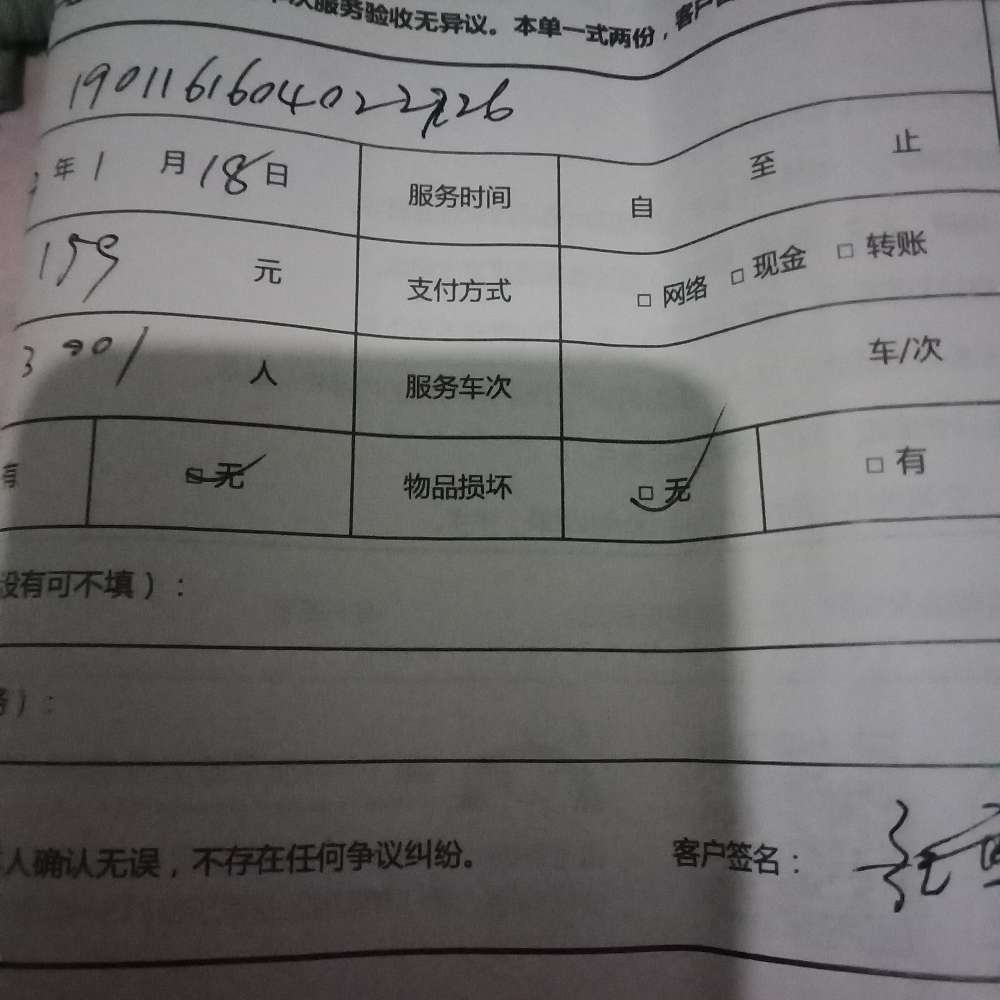 次服务验收无异议。本单一式两份，客户
年1月18日 服务时间 自 至 止
199 元 支付方式 □ 网络 □ 现金 □ 转账
人 服务车次 车/次
有 □ 无 物品损坏 □ 无 □ 有
没有可不填）：
）：
人确认无误，不存在任何争议纠纷。 客户签名：